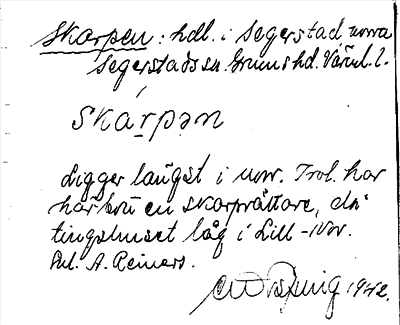 Skarpen: hdl. i Segerstad norra
Segerstads sn. Grums hd. Värml. l.
Skárpən
Ligger längst i norr. Trol. har
här bott en skarprättare, då
tingshuset låg i Lill-Nor.
Enl. A. Reiners.
1942.